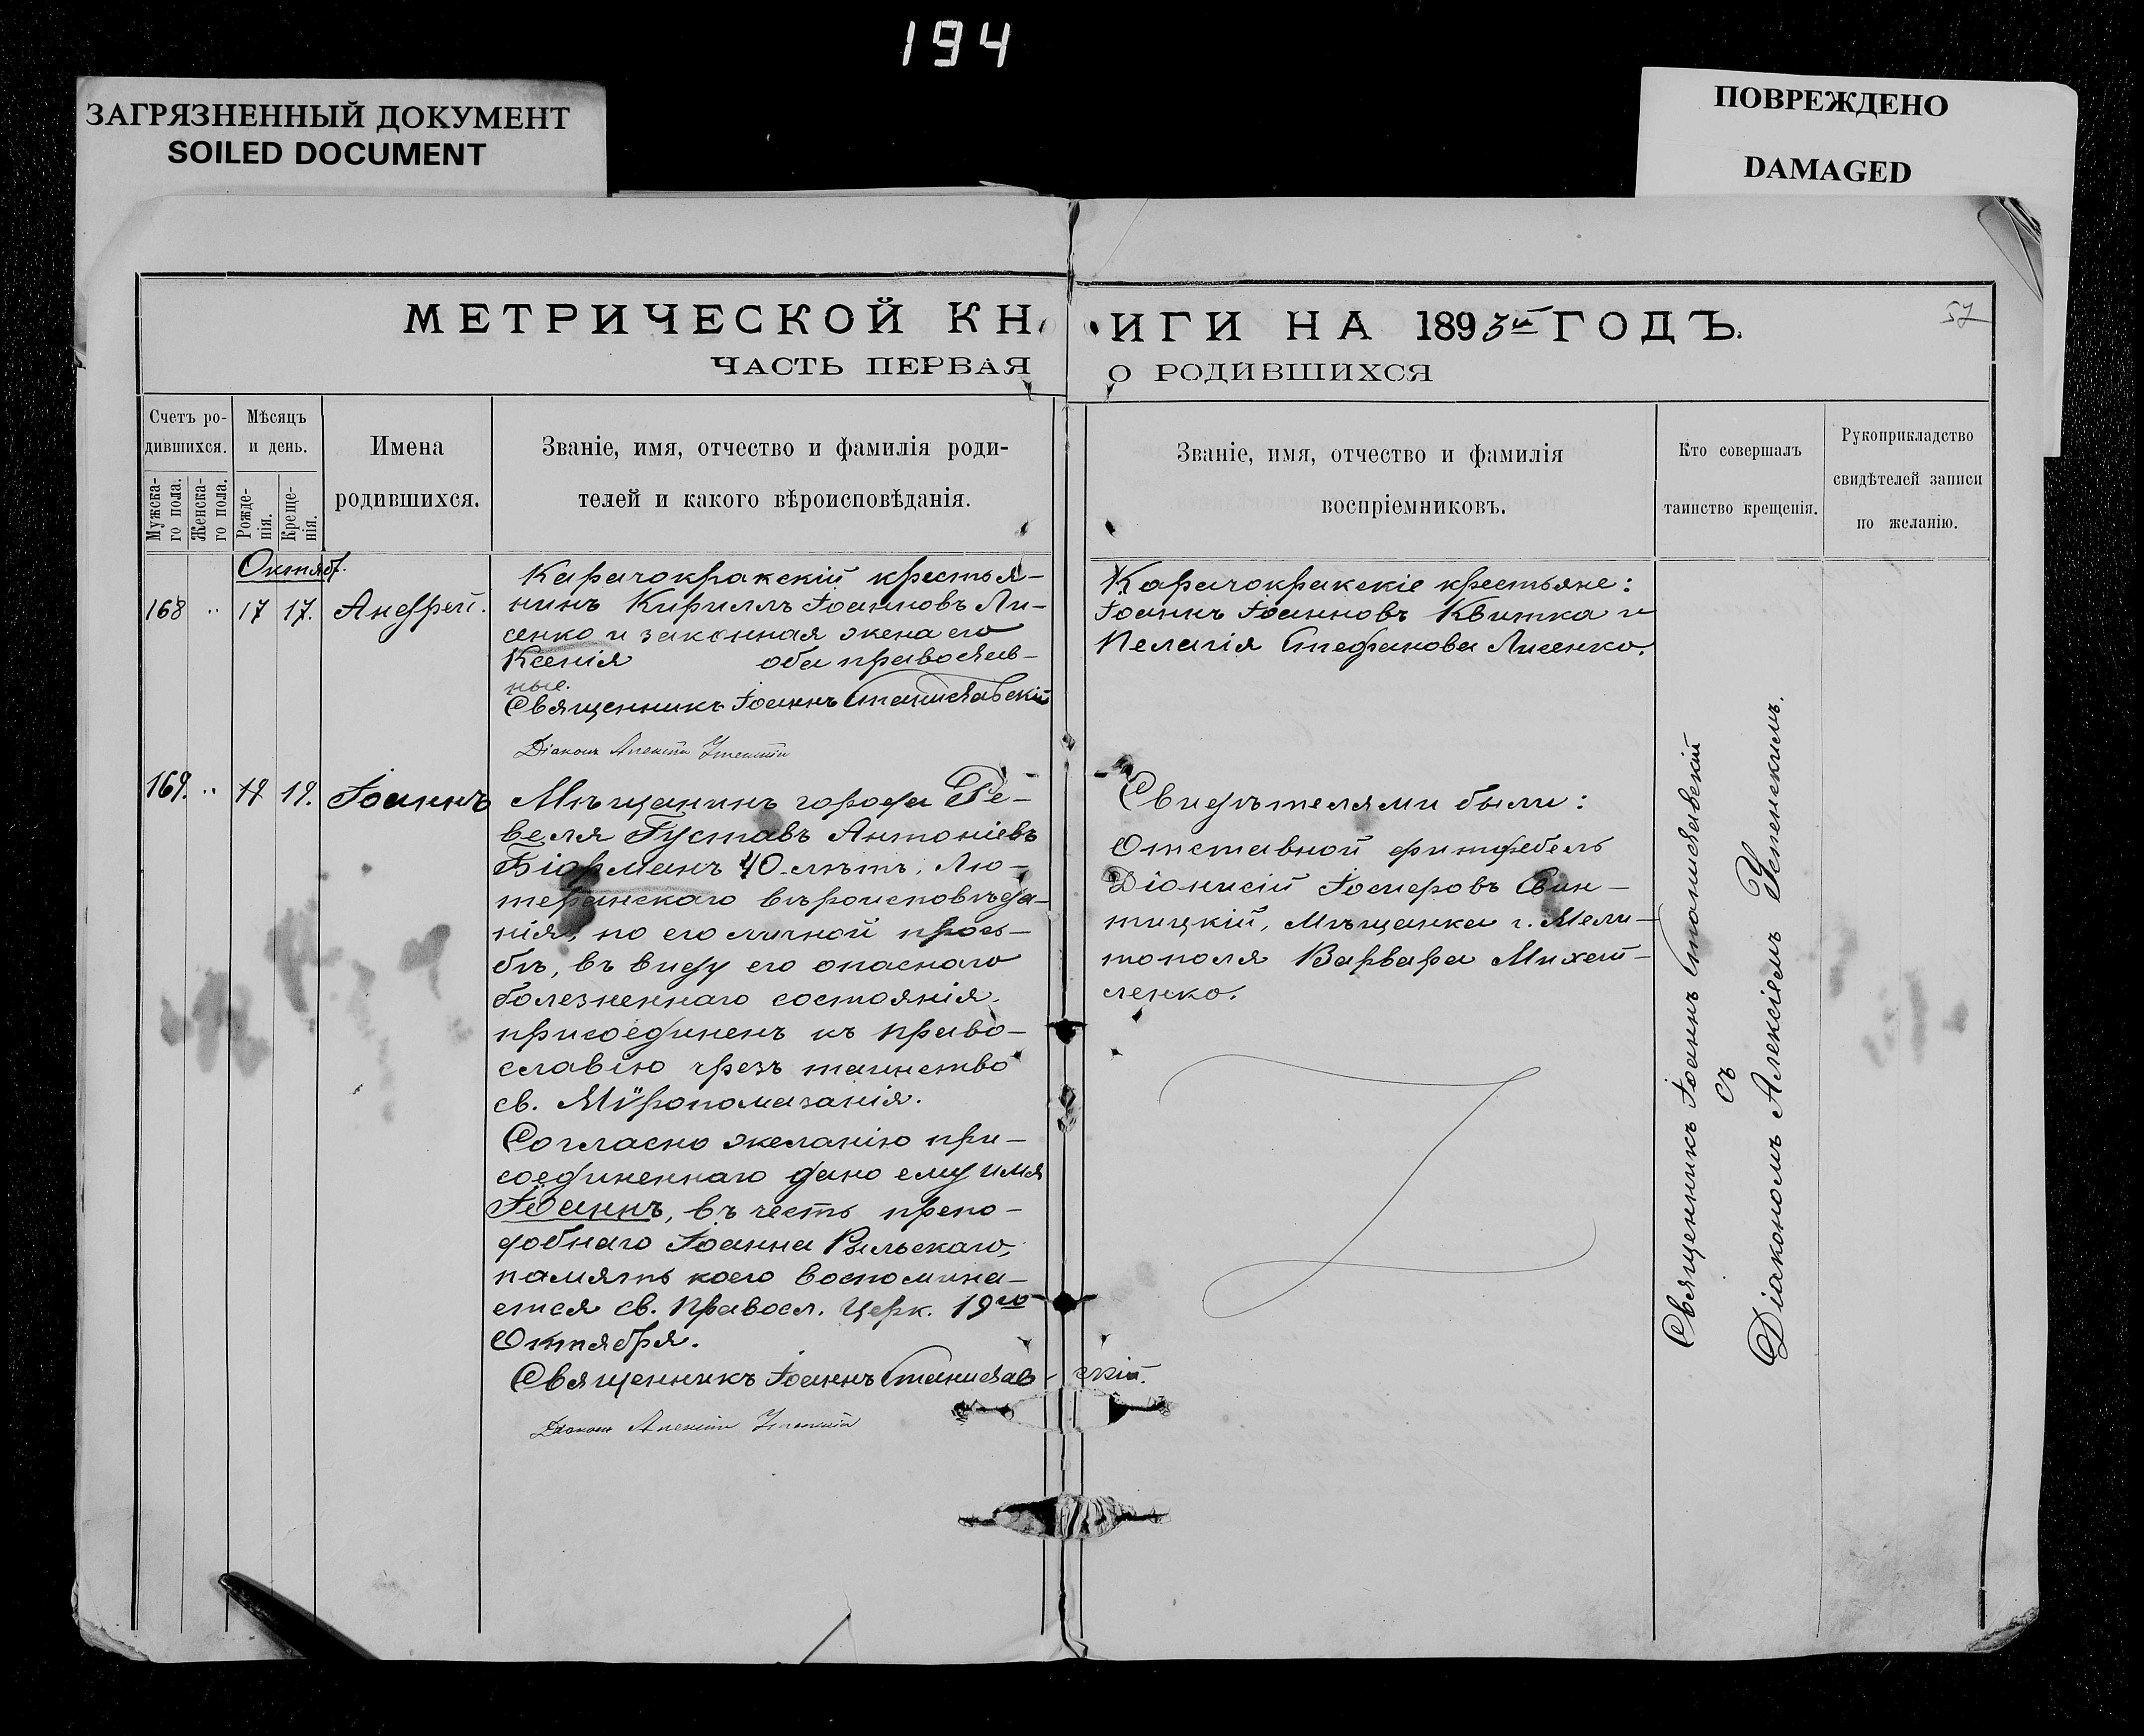 194
ЗАГРЯЗНЕННЫЙ ДОКУМЕНТ
SOILED DOCUMENT
ПОВРЕЖДЕНО
DAMAGED
МЕТРИЧЕСКОЙ КНИГИ НА 1893й ГОДЪ.
57
ЧАСТЬ ПЕРВАЯ О РОДИВШИХСЯ
Счетъ ро-
дившихся.
Мужска-
го пола.
Женска-
го пола.
Мѣсяцъ
и день.
Рожде-
нія.
Креще-
нія.
Имена
родившихся.
Званіе, имя, отчество и фамилія роди-
телей и какого вѣроисповѣданія.
Званіе, имя, отчество и фамилія
воспріемниковъ.
Кто совершалъ
таинство крещенія.
Рукоприкладство
свидѣтелей записи
по желанію.
Октяб.
168 " 17 17. Андрей.
Карачокракскій крестья-
нинъ Кириллъ Іоанновъ Ли-
сенко и законная жена его
Ксенія оба православ-
ные.
Священникъ Іоаннъ Станиславскій
Діаконъ Алексій Успенскій
Карачокракскіе крестьяне:
Іоаннъ Іоанновъ Квитка и
Пелагія Стефанова Лисенко.
169. " 19 19. Іоаннъ
Мѣщанинъ города Ре-
веля Густавъ Антоніевъ
Біорманъ 40 лѣтъ, Лю-
теранскаго вѣроисповѣда-
нія, по его личной прось-
бѣ, въ виду его опаснаго
болезненнаго состоянія.
присоединенъ къ право-
славію чрезъ таинство
св. Мѵропомазанія.
Согласно желанію при-
соединеннаго дано ему имя
Іоаннъ, въ честь препо-
добнаго Іоанна Рыльскаго,
память коего воспомина-
ется св. Правосл. Церк. 19го
Октября.
Священникъ Іоаннъ Станислав-скій.
Діаконъ Алексій Успенскій
Свидѣтелями были:
Отставной фитфебель
Діонисій Іосифовъ Свин-
тицкій, Мѣщанка г. Мели-
тополя Варвара Михай-
ленко.
Священникъ Іоаннъ Станиславскій
съ
Діакономъ Алексіемъ Успенскимъ.